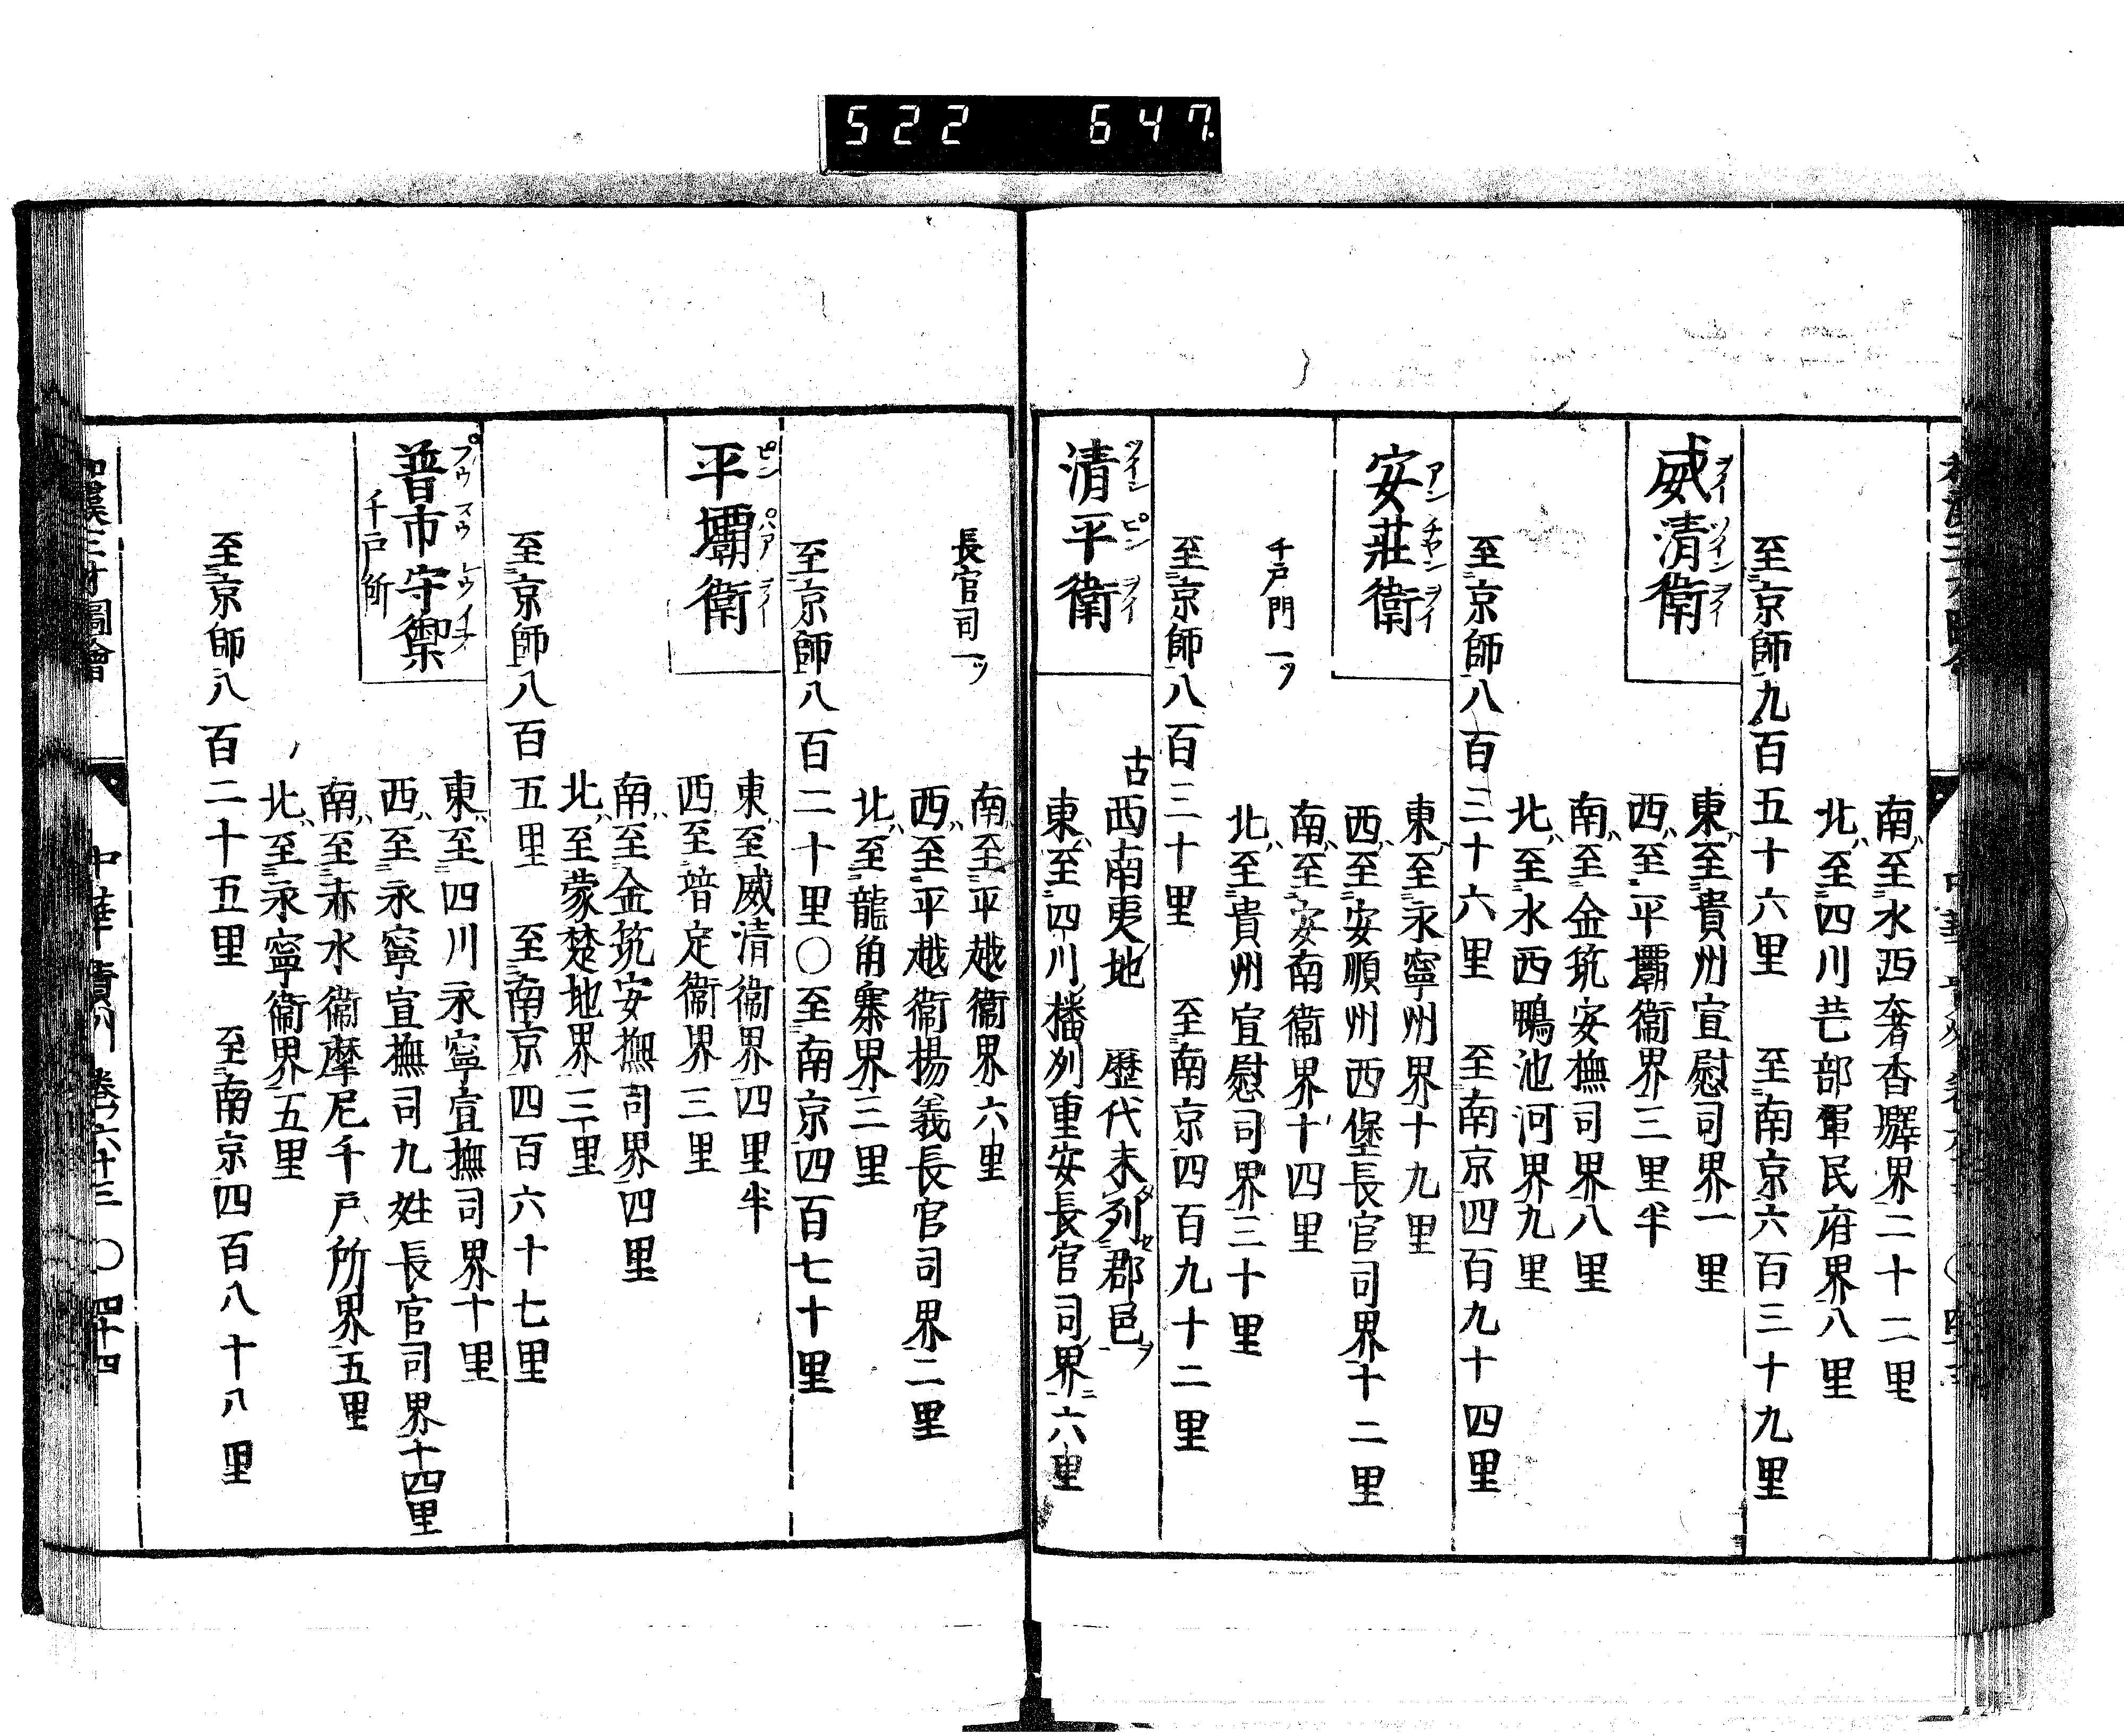 522 647
南ハ至水西奢香驛界二十二里
北ハ至四川芒部軍民府界八里
至京師九百五十六里 至南京六百三十九里
威清衛
東ハ至貴州宣慰司界一里
西ハ至平壩衛界三里半
南ハ至金筑安撫司界八里
北ハ至水西鴨池河界九里
至京師八百三十六里 至南京四百九十四里
安莊衛
アンチヤンヲイ
東ハ至永寧州界十九里
西ハ至安順州西堡長官司界十二里
南ハ至安南衛界十四里
北ハ至貴州宣慰司界三十里
千戸門一ツ
至京師八百三十里 至南京四百九十二里
清平衛
ツインピンヲイ
古西南夷地 歴代未列郡邑
東ハ至四川播州重安長官司界六里
南ハ至平越衛界六里
長官司一ツ
西ハ至平越衛揚義長官司界二里
北ハ至龍角寨界三里
至京師八百二十里〇至南京四百七十里
平壩衛
東ハ至威清衛界四里半
西至普定衛界三里
南ハ至金筑安撫司界四里
北ハ至蒙楚地界三里
至京師八百五里 至南京四百六十七里
普市守禦
千戸所
東ハ至四川永寧宣撫司界十里
西ハ至永寧宣撫司九姓長官司界十四里
南ハ至赤水衛摩尼千戸所界五里
北ハ至永寧衛界五里
至京師八百二十五里 至南京四百八十八里
和漢三才圖會 中華 貴州 卷六十三 〇 四十四